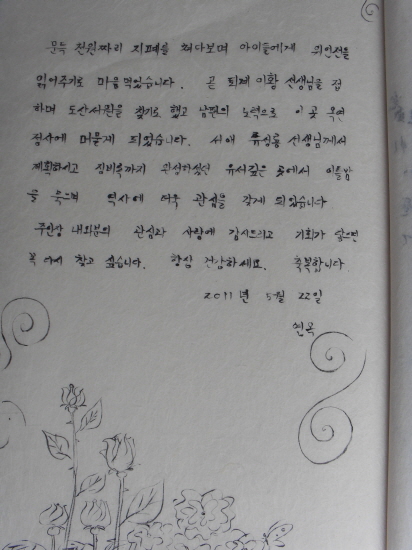 문득 천원짜리 지폐를 쳐다보며 아이들에게 위인전을
읽어주기로 마음먹었습니다. 곧 퇴계 이황 선생님을 접
하며 도산서원을 찾기로 했고 남편의 노력으로 이곳 옥연
정사에 머물게 되었습니다. 서애 류성룡 선생님께서
계획하시고 징비록까지 완성하셨던 유서깊은 곳에서 이틀밤
을 묵으며 역사에 더욱 관심을 갖게 되었습니다
주인장 내외분의 관심과 사랑에 감사드리고 기회가 닿으면
꼭 다시 찾고 싶습니다. 항상 건강하세요. 축복합니다.
2011년 5월 22일